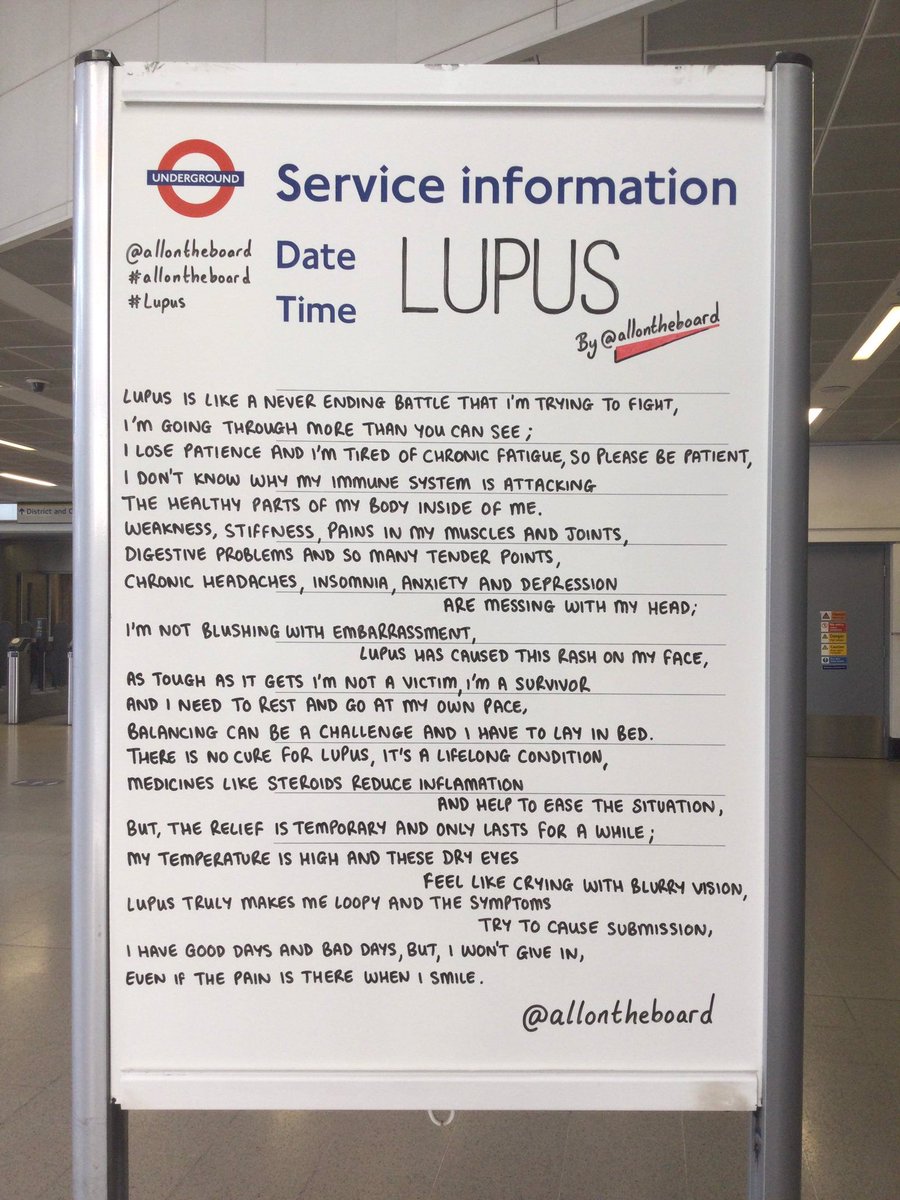 UNDERGROUND
Service information
@allontheboard
#allontheboard
#Lupus
Date
Time
LUPUS
By @allontheboard
LUPUS IS LIKE A NEVER ENDING BATTLE THAT I'M TRYING TO FIGHT,
I'M GOING THROUGH MORE THAN YOU CAN SEE;
I LOSE PATIENCE AND I'M TIRED OF CHRONIC FATIGUE, SO PLEASE BE PATIENT,
I DON'T KNOW WHY MY IMMUNE SYSTEM IS ATTACKING
THE HEALTHY PARTS OF MY BODY INSIDE OF ME.
WEAKNESS, STIFFNESS, PAINS IN MY MUSCLES AND JOINTS,
DIGESTIVE PROBLEMS AND SO MANY TENDER POINTS,
CHRONIC HEADACHES, INSOMNIA, ANXIETY AND DEPRESSION
ARE MESSING WITH MY HEAD;
I'M NOT BLUSHING WITH EMBARRASSMENT,
LUPUS HAS CAUSED THIS RASH ON MY FACE,
AS TOUGH AS IT GETS I'M NOT A VICTIM, I'M A SURVIVOR
AND I NEED TO REST AND GO AT MY OWN PACE,
BALANCING CAN BE A CHALLENGE AND I HAVE TO LAY IN BED.
THERE IS NO CURE FOR LUPUS, IT'S A LIFELONG CONDITION,
MEDICINES LIKE STEROIDS REDUCE INFLAMATION
AND HELP TO EASE THE SITUATION,
BUT, THE RELIEF IS TEMPORARY AND ONLY LASTS FOR A WHILE;
MY TEMPERATURE IS HIGH AND THESE DRY EYES
FEEL LIKE CRYING WITH BLURRY VISION,
LUPUS TRULY MAKES ME LOOPY AND THE SYMPTOMS
TRY TO CAUSE SUBMISSION,
I HAVE GOOD DAYS AND BAD DAYS, BUT, I WON'T GIVE IN,
EVEN IF THE PAIN IS THERE WHEN I SMILE.
@allontheboard
District and